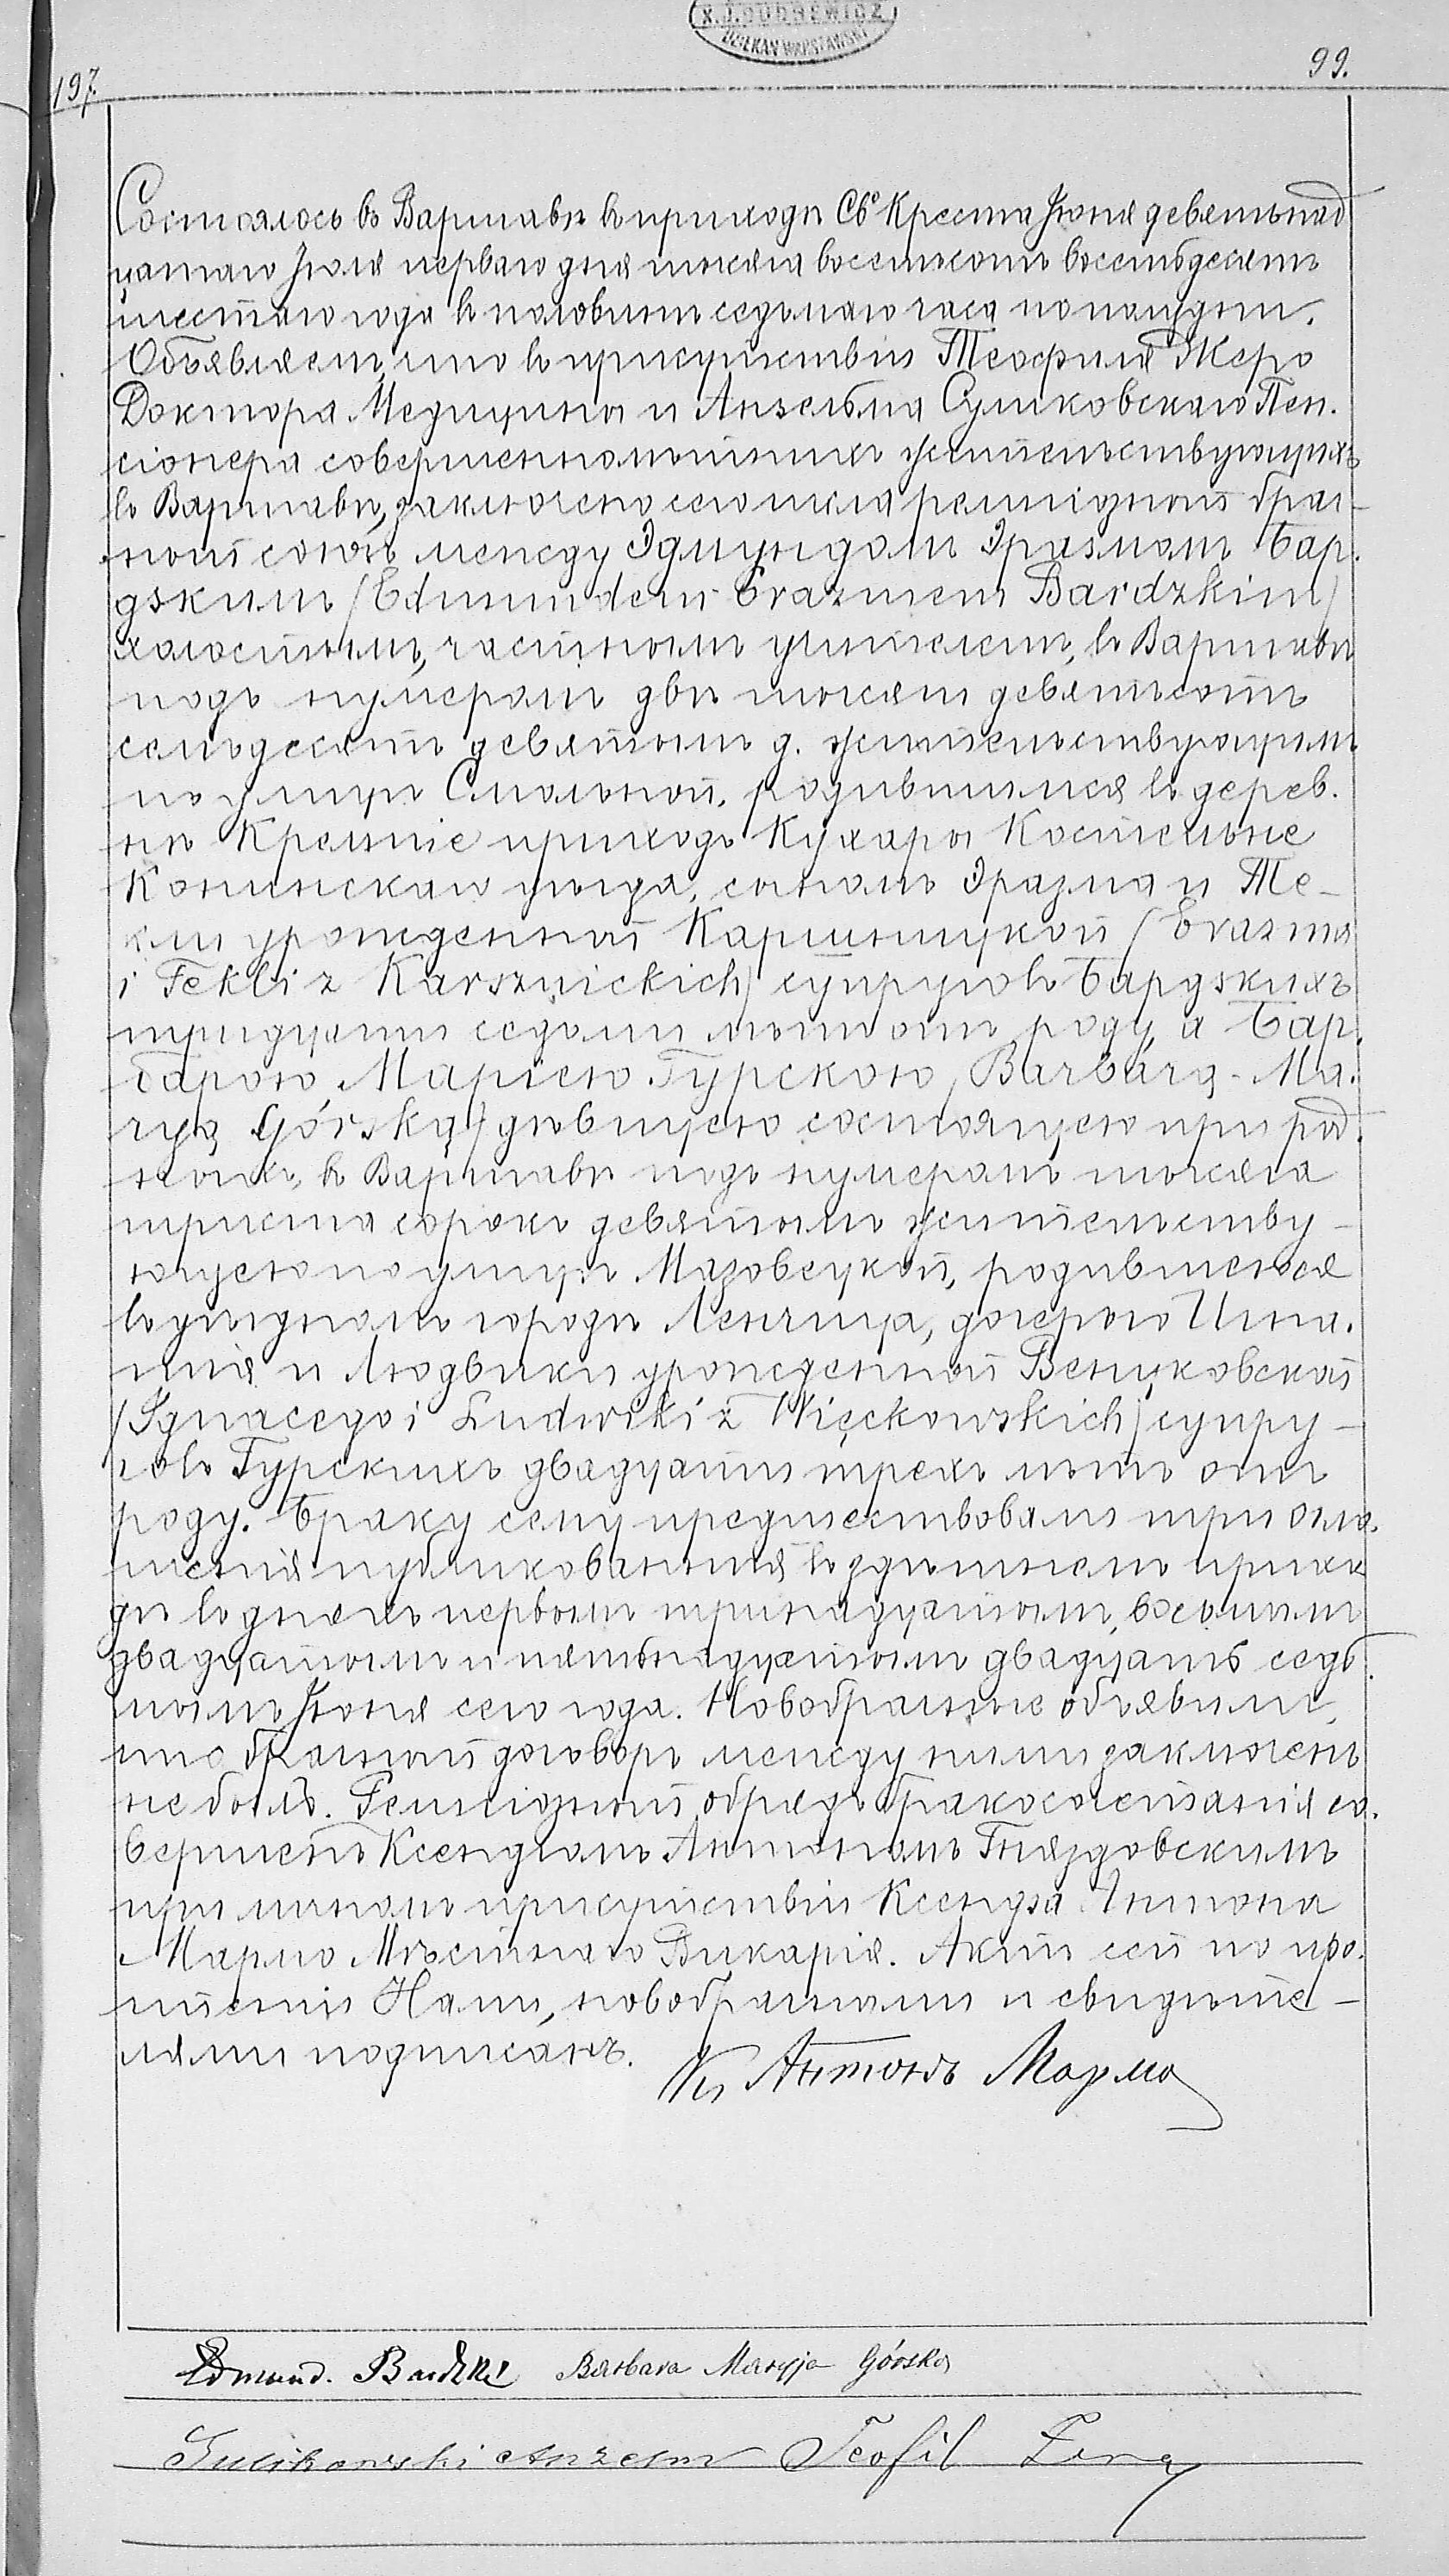 X. J. DUDREWICZ
DZIEKAN WARSZAWSKI
197.
99.
Состоялось въ Варшавѣ въ приходѣ Св. Креста Іюня девятнад
цатаго Іюля перваго дня тысяча восемьсотъ восемьдесятъ
шестаго года въ половинѣ седьмаго часа пополудни.
Объявляемъ, что въ присутствіи Теофиля Жеро
Доктора Медицины и Анзельма Суликовскаго Пен.
сіонера совершеннолѣтнихъ жительствующихъ
въ Варшавѣ, заключенъ сего числа религіозный брач-
ный союзъ между Эдмундомъ Эразмомъ Бар.
дзкимъ /Edmundem Erazmem Bardzkim/
холостымъ, частнымъ учителемъ, въ Варшавѣ
подъ нумеромъ двѣ тысячи девятьсотъ
семьдесятъ девятымъ д. жительствующимъ
по улицѣ Смольной, родившимся въ дерев.
нѣ Кремпіе приходъ Кухары Костельне
Конинскаго уѣзда, сыномъ Эразма и Те-
кли урожденной Каршницкой /Erazma
i Tekli z Karsznickich/ супруговъ Бардзкихъ
тридцати седьми лѣтъ отъ роду, а Бар.
барою Маріею Гурскою /Barbarą-Ma.
ryą Górską/ дѣвицею состоящею при род.
ныхъ, въ Варшавѣ подъ нумеромъ тысяча
триста сорокъ девятымъ жительству-
ющею по улицѣ Мазовецкой, родившеюся
въ уѣздномъ городѣ Ленчица, дочерью Игна.
тія и Людвики урожденной Венцковской
/Ignacego i Ludwiki z Więckowskich/ супру-
говъ Гурскихъ двадцати трехъ лѣтъ отъ
роду. Браку сему предшествовали три огла.
шенія публикованныя въ здѣшнемъ прихо
дѣ въ дняхъ первомъ тринадцатомъ, восьмомъ
двадцатомъ и пятьнадцатомъ двадцать седь.
момъ Іюня сего года. Новобрачные объявили,
что брачный договоръ между ними заключенъ
не былъ. Религіозный обрядъ бракосочетанія со.
вершенъ Ксендзомъ Антономъ Гняздовскимъ
при личномъ присутствіи Ксендза Антона
Мармо Мѣстнаго Викарія. Актъ сей по про.
чтеніи Нами, новобрачными и свидѣте-
лями подписанъ.
Кс Антонъ Мармо
Edmund. Bardzki Barbara Maryja Górska
Sulikowski Anzelm Teofil